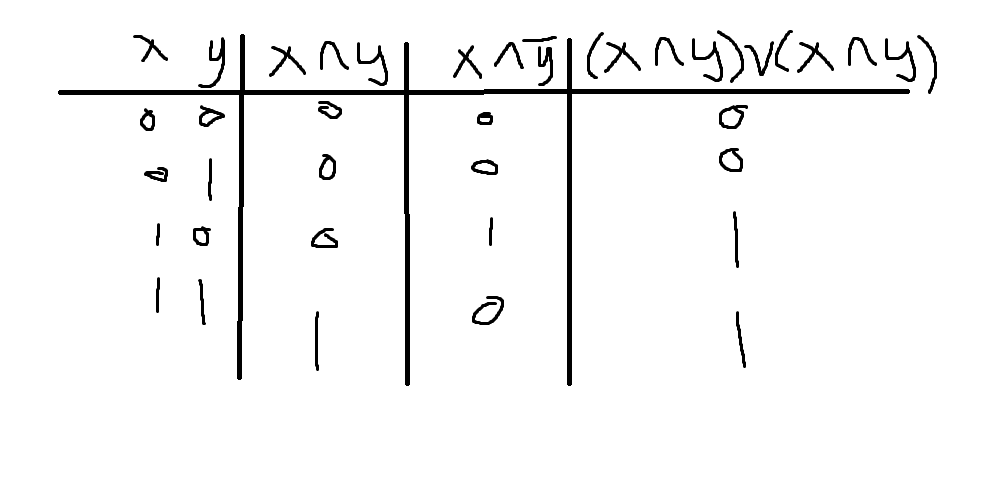 x y x ∩ y x ∧ y̅ (x ∩ y) ∨ (x ∩ y)
0 0 0 0 0
0 1 0 0 0
1 0 0 1 1
1 1 1 0 1